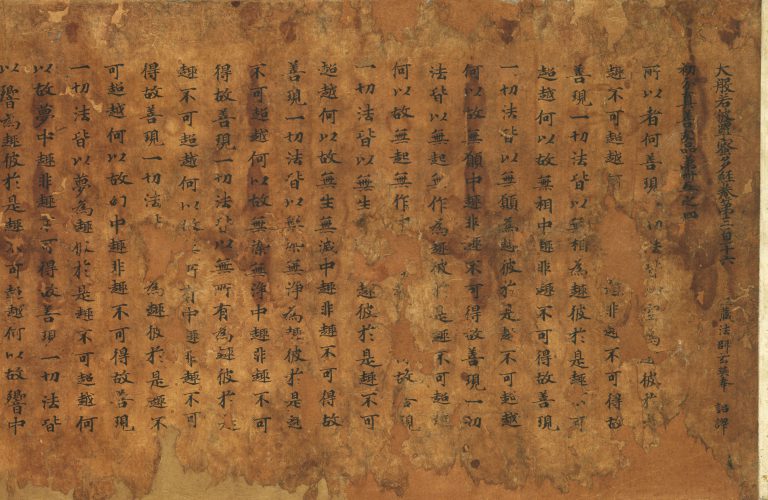 大般若波羅蜜多經卷第三百十六 三藏法師玄奘奉 詔譯
初分真善友品第卌五之四
所以者何善現一切法皆以空為趣彼於
趣不可超越 趣非趣不可得故
善現一切法皆以無相為趣彼於是趣不可
超越何以故無相中趣非趣不可得故善現
一切法皆以無願為趣彼於是趣不可超越
何以故無願中趣非趣不可得故善現一切
法皆以無起無作為趣彼於是趣不可超越
何以故無起無作 故善現
一切法皆以無生 趣彼於是趣不可
超越何以故無生無滅中趣非趣不可得故
善現一切法皆以無染無淨為趣彼於是趣
不可超越何以故無染無淨中趣非趣不可
得故善現一切法皆以無所有為趣彼於是
趣不可超越何以故無所有中趣非趣不可
得故善現一切法 為趣彼於是趣不
可超越何以故幻中趣非趣不可得故善現
一切法皆以夢為趣彼於是趣不可超越何
以故夢中趣非趣不可得故善現一切法皆
以響為趣彼於是趣不可超越何以故響中